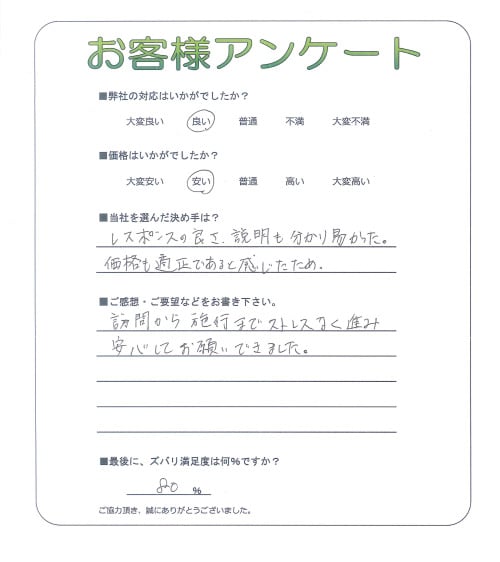 お客様アンケート
■弊社の対応はいかがでしたか？
大変良い 良い 普通 不満 大変不満
■価格はいかがでしたか？
大変安い 安い 普通 高い 大変高い
■当社を選んだ決め手は？
レスポンスの良さ、説明も分かり易かった。
価格も適正であると感じたため。
■ご感想・ご要望などをお書き下さい。
訪問から施行までストレスなく進み
安心してお願いできました。
■最後に、ズバリ満足度は何%ですか？
80 %
ご協力頂き、誠にありがとうございました。